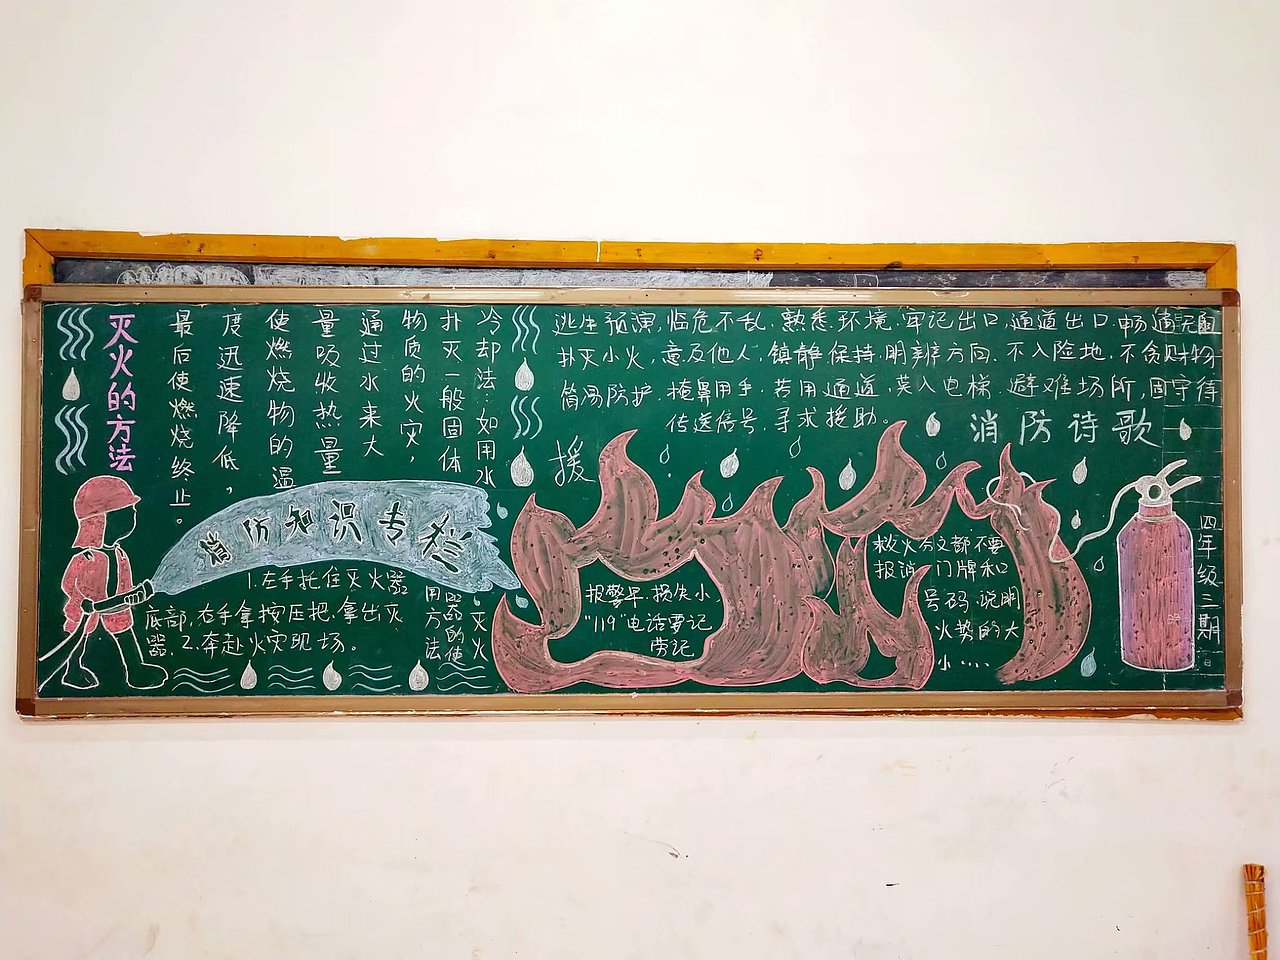 灭火的方法
冷却法:如用水
扑灭一般固体
物质的火灾,
通过水来大
量吸收热量
使燃烧物的温
度迅速降低,
最后使燃烧终止。
消防知识专栏
灭火
器的使
用方法
1.左手托住灭火器
底部,右手拿按压把.拿出灭
器.2.奔赴火灾现场。
逃生预演,临危不乱.熟悉环境,牢记出口,通道出口.畅通无阻
扑灭小火,意及他人.镇静保持.明辨方向.不入险地,不贪财物
简易防护,掩鼻用手.苦用通道,莫入电梯.避难场所,固守待
援
传送信号.寻求援助。
消防诗歌
报警早.损失小
"119"电话要记
劳记
救火分文都不要
报消 门牌和
号码.说明
火势的大
小....
四年级三期